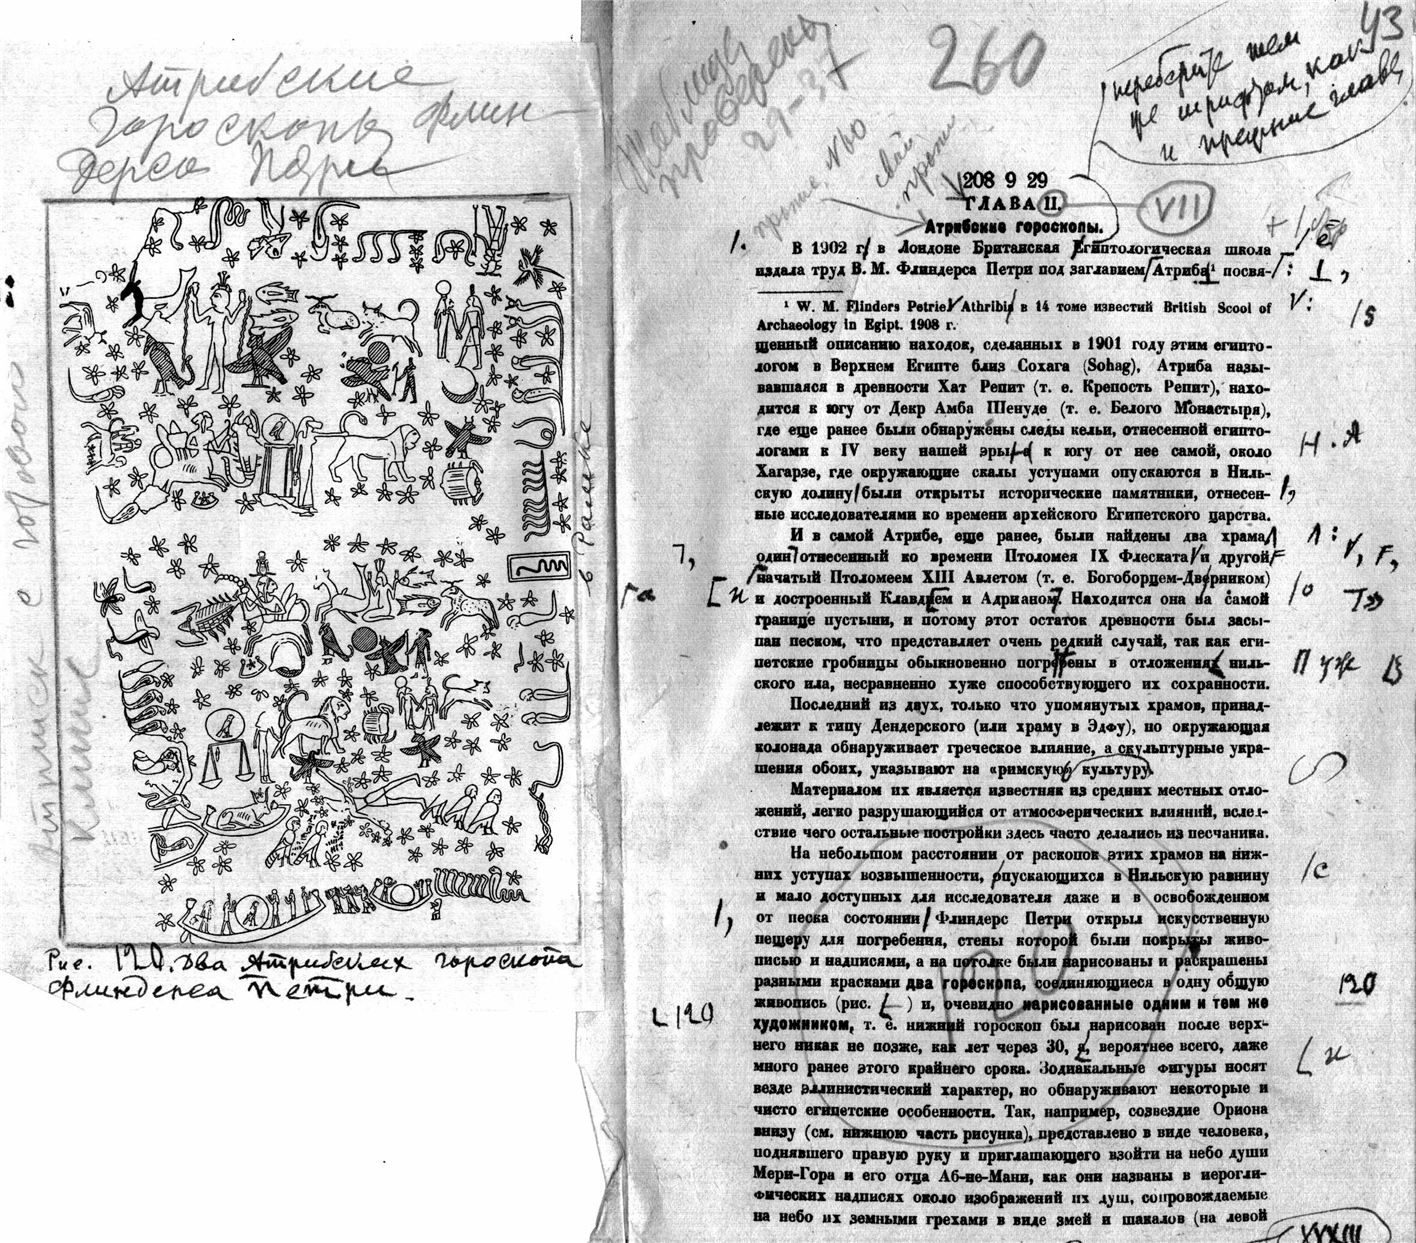 Атрибские
гороскопы Флин-
дерса Петри
Оттиск с городской
в рамке
Рис. 120. Два Атрибских гороскопа
Флиндерса Петри.
43
260
проверены
29-37
переберите тем
же шрифтом, как
и прежние главы
208 9 29
ГЛАВА II.
VII
Атрибские гороскопы.
В 1902 г. в Лондоне Британская Египтологическая школа
издала труд В. М. Флиндерса Петри под заглавием Атриба¹ посвя-
¹ W. M. Flinders Petrie Athribis в 14 томе известий British Scool of
Archaeology in Egipt. 1908 г.
щенный описанию находок, сделанных в 1901 году этим египто-
логом в Верхнем Египте близ Сохага (Sohag), Атриба назы-
вавшаяся в древности Хат Репит (т. е. Крепость Репит), нахо-
дится к югу от Декр Амба Шенуде (т. е. Белого Монастыря),
где еще ранее были обнаружены следы кельи, отнесенной египто-
логами к IV веку нашей эры к югу от нее самой, около
Хагарзе, где окружающие скалы уступами опускаются в Ниль-
скую долину были открыты исторические памятники, отнесен-
ные исследователями ко времени архейского Египетского царства.
И в самой Атрибе, еще ранее, были найдены два храма
один отнесенный ко времени Птоломея IX Флеската и другой
начатый Птоломеем XIII Авлетом (т. е. Богоборцем-Дверником)
и достроенный Клавдием и Адрианом. Находится она на самой
границе пустыни, и потому этот остаток древности был засы-
пан песком, что представляет очень редкий случай, так как еги-
петские гробницы обыкновенно погребены в отложения ниль-
ского ила, несравненно хуже способствующего их сохранности.
Последний из двух, только что упомянутых храмов, принад-
лежит к типу Дендерского (или храму в Эдфу), но окружающая
колонада обнаруживает греческое влияние, а скульптурные укра-
шения обоих, указывают на «римскую» культуру.
Материалом их является известняк из средних местных отло-
жений, легко разрушающийся от атмосферических влияний, вслед-
ствие чего остальные постройки здесь часто делались из песчаника.
На небольшом расстоянии от раскопок этих храмов на ниж-
них уступах возвышенности, опускающихся в Нильскую равнину
и мало доступных для исследователя даже и в освобожденном
от песка состоянии Флиндерс Петри открыл искусственную
пещеру для погребения, стены которой были покрыты живо-
писью и надписями, а на потолке были нарисованы и раскрашены
разными красками два гороскопа, соединяющиеся в одну общую
живопись (рис. ) и, очевидно нарисованные одним и тем же
художником, т. е. нижний гороскоп был нарисован после верх-
него никак не позже, как лет через 30, а, вероятнее всего, даже
много ранее этого крайнего срока. Зодиакальные фигуры носят
везде эллинистический характер, но обнаруживают некоторые и
чисто египетские особенности. Так, например, созвездие Ориона
внизу (см. нижнюю часть рисунка), представлено в виде человека,
поднявшего правую руку и приглашающего взойти на небо души
Мери-Гора и его отца Аб-не-Мани, как они названы в иерогли-
фических надписях около изображений их душ, сопровождаемые
на небо их земными грехами в виде змей и шакалов (на левой
120
120
XXXIII